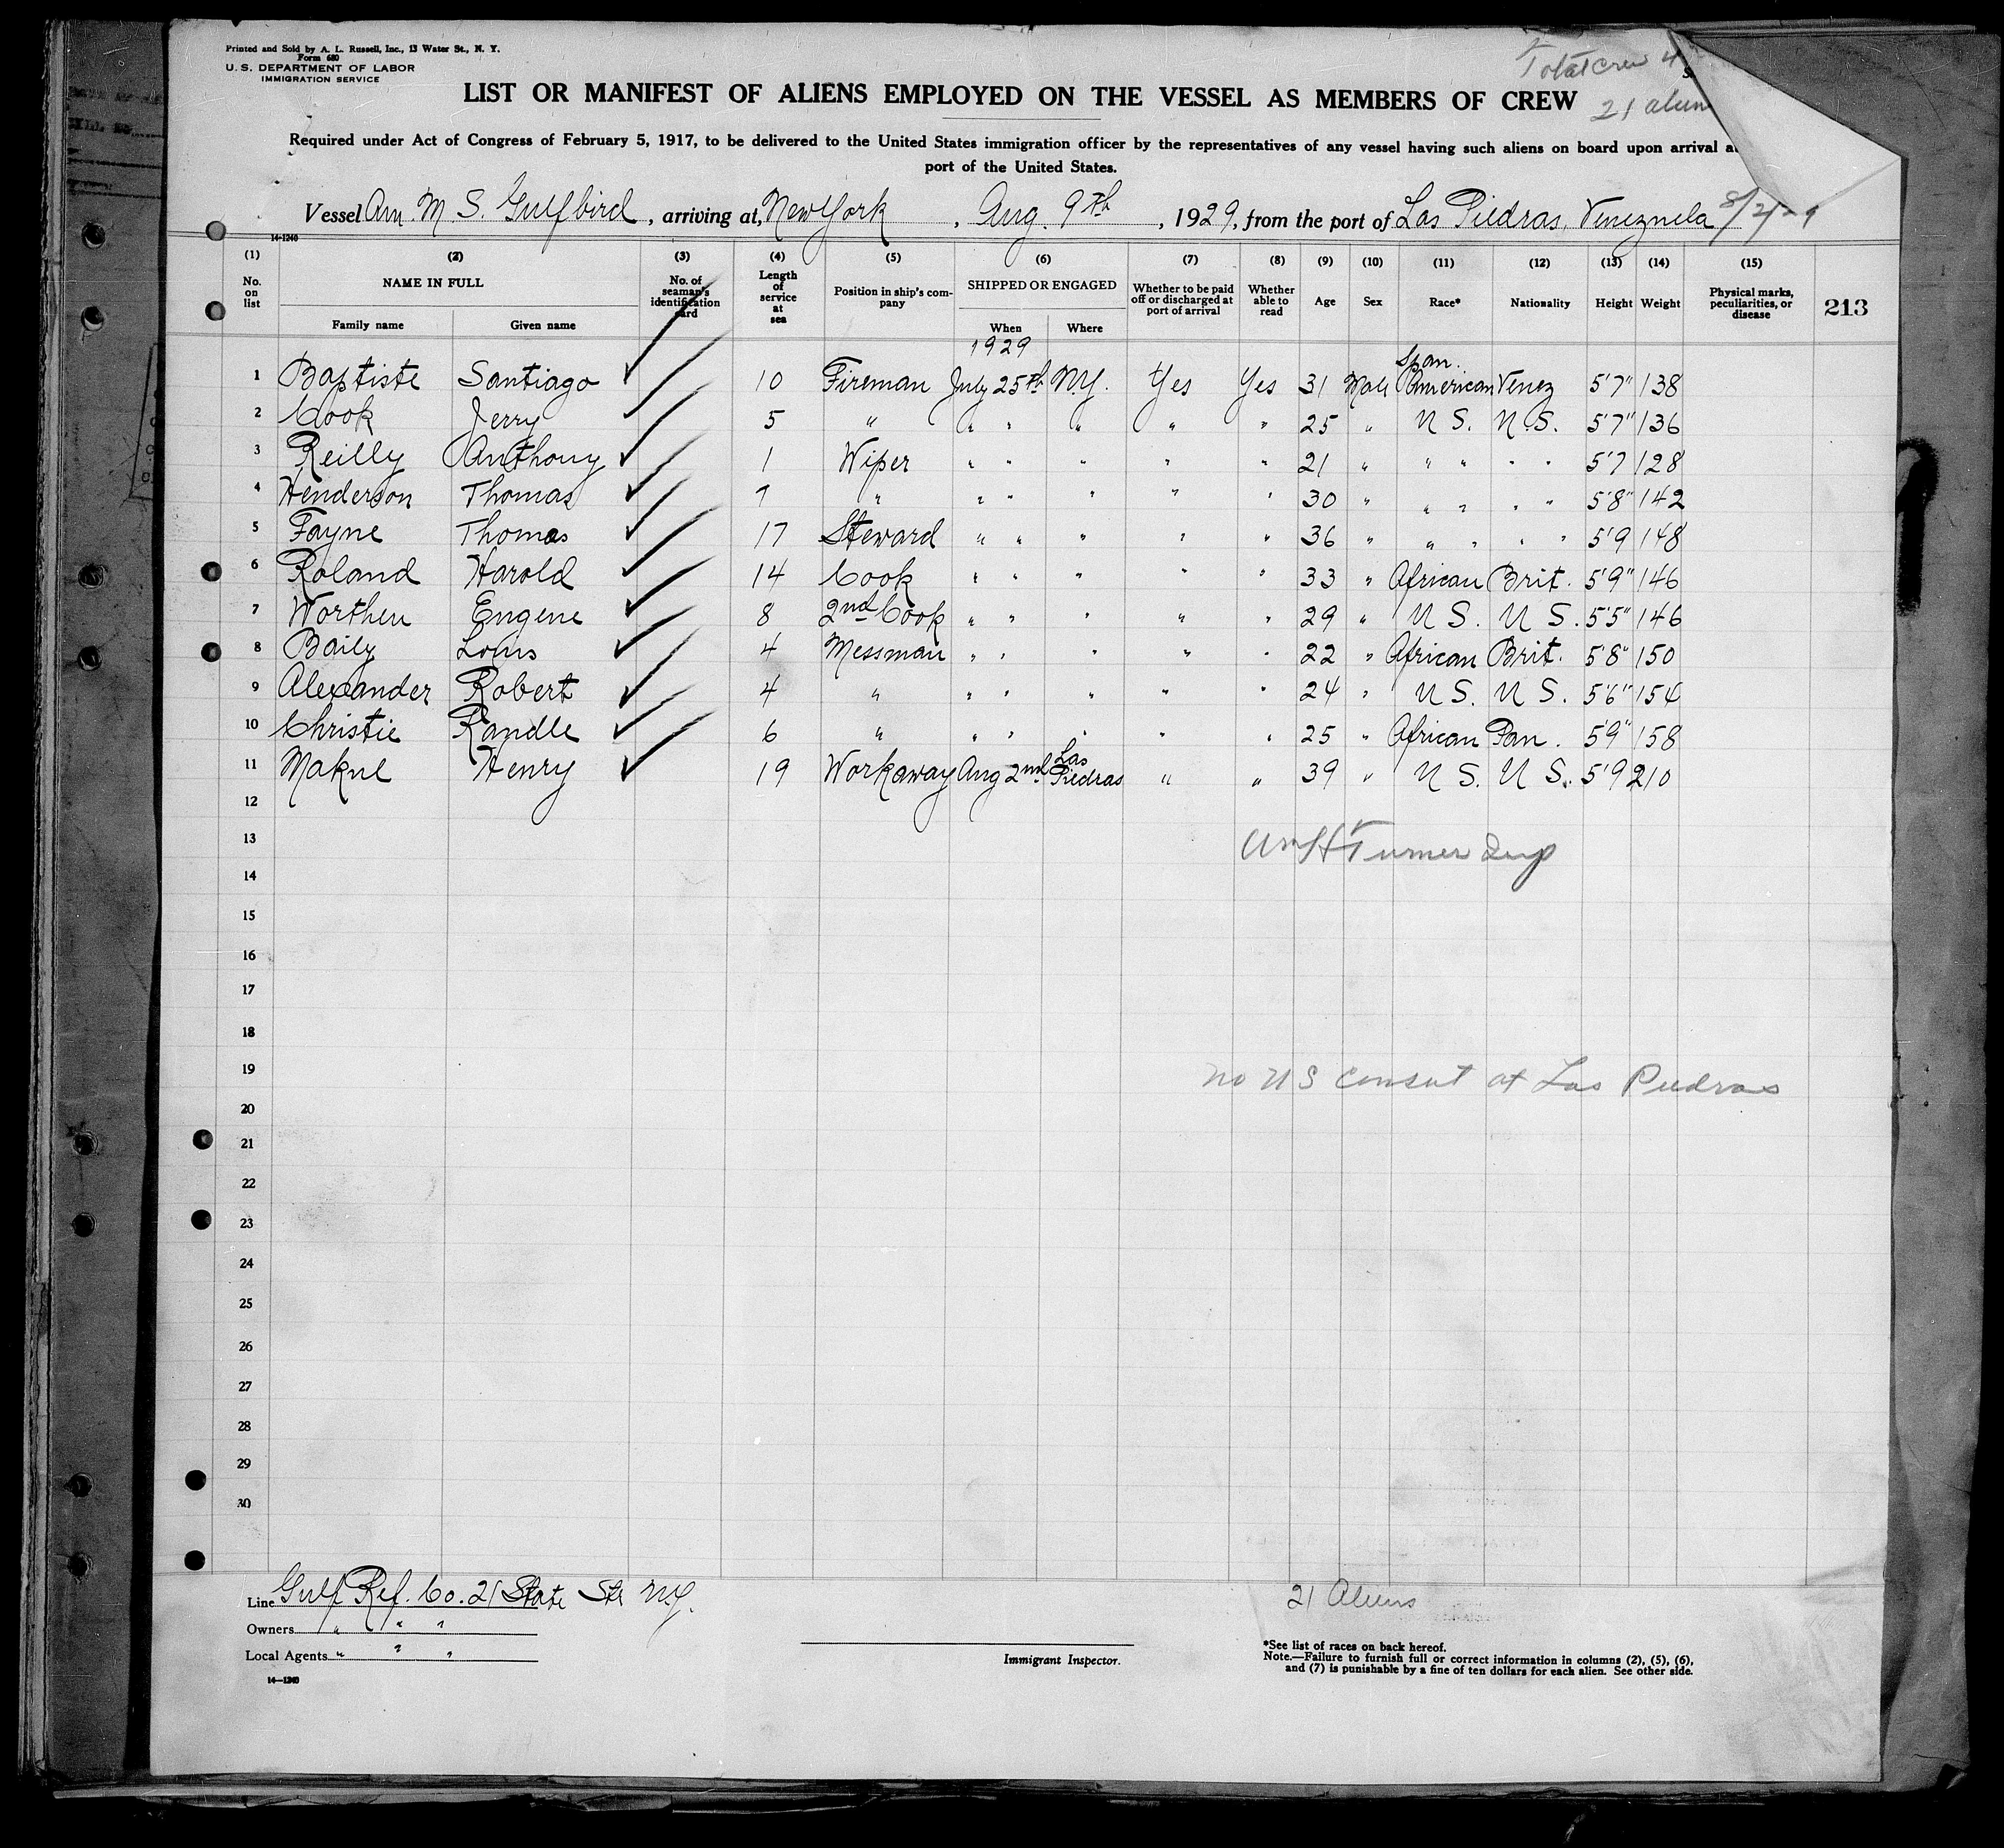 Printed and Sold by A. L. Russell, Inc., 13 Water St., N. Y.
Form 680
U. S. DEPARTMENT OF LABOR
IMMIGRATION SERVICE
Total crew 4
21 alien
LIST OR MANIFEST OF ALIENS EMPLOYED ON THE VESSEL AS MEMBERS OF CREW
Required under Act of Congress of February 5, 1917, to be delivered to the United States immigration officer by the representatives of any vessel having such aliens on board upon arrival a
port of the United States.
Vessel Am. M S. Gulfbird, arriving at, New York, Aug. 9th, 1929, from the port of Las Piedras, Venezuela 8/2/29
14-1240
(1) (2) (3) (4) (5) (6) (7) (8) (9) (10) (11) (12) (13) (14) (15)
No. on list NAME IN FULL Family name Given name No. of seaman's identification card Length of service at sea Position in ship's company SHIPPED OR ENGAGED When Where Whether to be paid off or discharged at port of arrival Whether able to read Age Sex Race* Nationality Height Weight Physical marks, peculiarities, or disease 213
1929
1 Baptiste Santiago ✓ 10 Fireman July 25th N.Y. Yes Yes 31 Male Span. American Venez 5'7" 138
2 Cook Jerry ✓ 5 " " " " " " 25 " U S. U.S. 5'7" 136
3 Reilly Anthony ✓ 1 Wiper " " " " " 21 " " " " " 5'7 128
4 Henderson Thomas ✓ 7 " " " " " " 30 " " " " " 5'8" 142
5 Fayne Thomas ✓ 17 Steward " " " " " 36 " " " " " 5'9 148
6 Roland Harold ✓ 14 Cook " " " " " 33 " African Brit. 5'9" 146
7 Worthen Eugene ✓ 8 2nd Cook " " " " " 29 " U S. U S. 5'5" 146
8 Baily Louis ✓ 4 Messman " " " " " 22 " African Brit. 5'8" 150
9 Alexander Robert ✓ 4 " " " " " " 24 " U S. U S. 5'6" 154
10 Christie Randle ✓ 6 " " " " " " 25 " African Pan. 5'9" 158
11 Makne Henry ✓ 19 Workaway Aug 2nd Las Piedras " " 39 " U S. U S. 5'9 210
12
13 Wm H Turner Insp
14
15
16
17
18
19 no U S consul at Las Piedras
20
21
22
23
24
25
26
27
28
29
30
Line Gulf Ref. Co. 21 State Str N.Y.
Owners " " "
Local Agents " " "
14—1240
Immigrant Inspector.
21 Aliens
*See list of races on back hereof.
Note.—Failure to furnish full or correct information in columns (2), (5), (6),
and (7) is punishable by a fine of ten dollars for each alien. See other side.